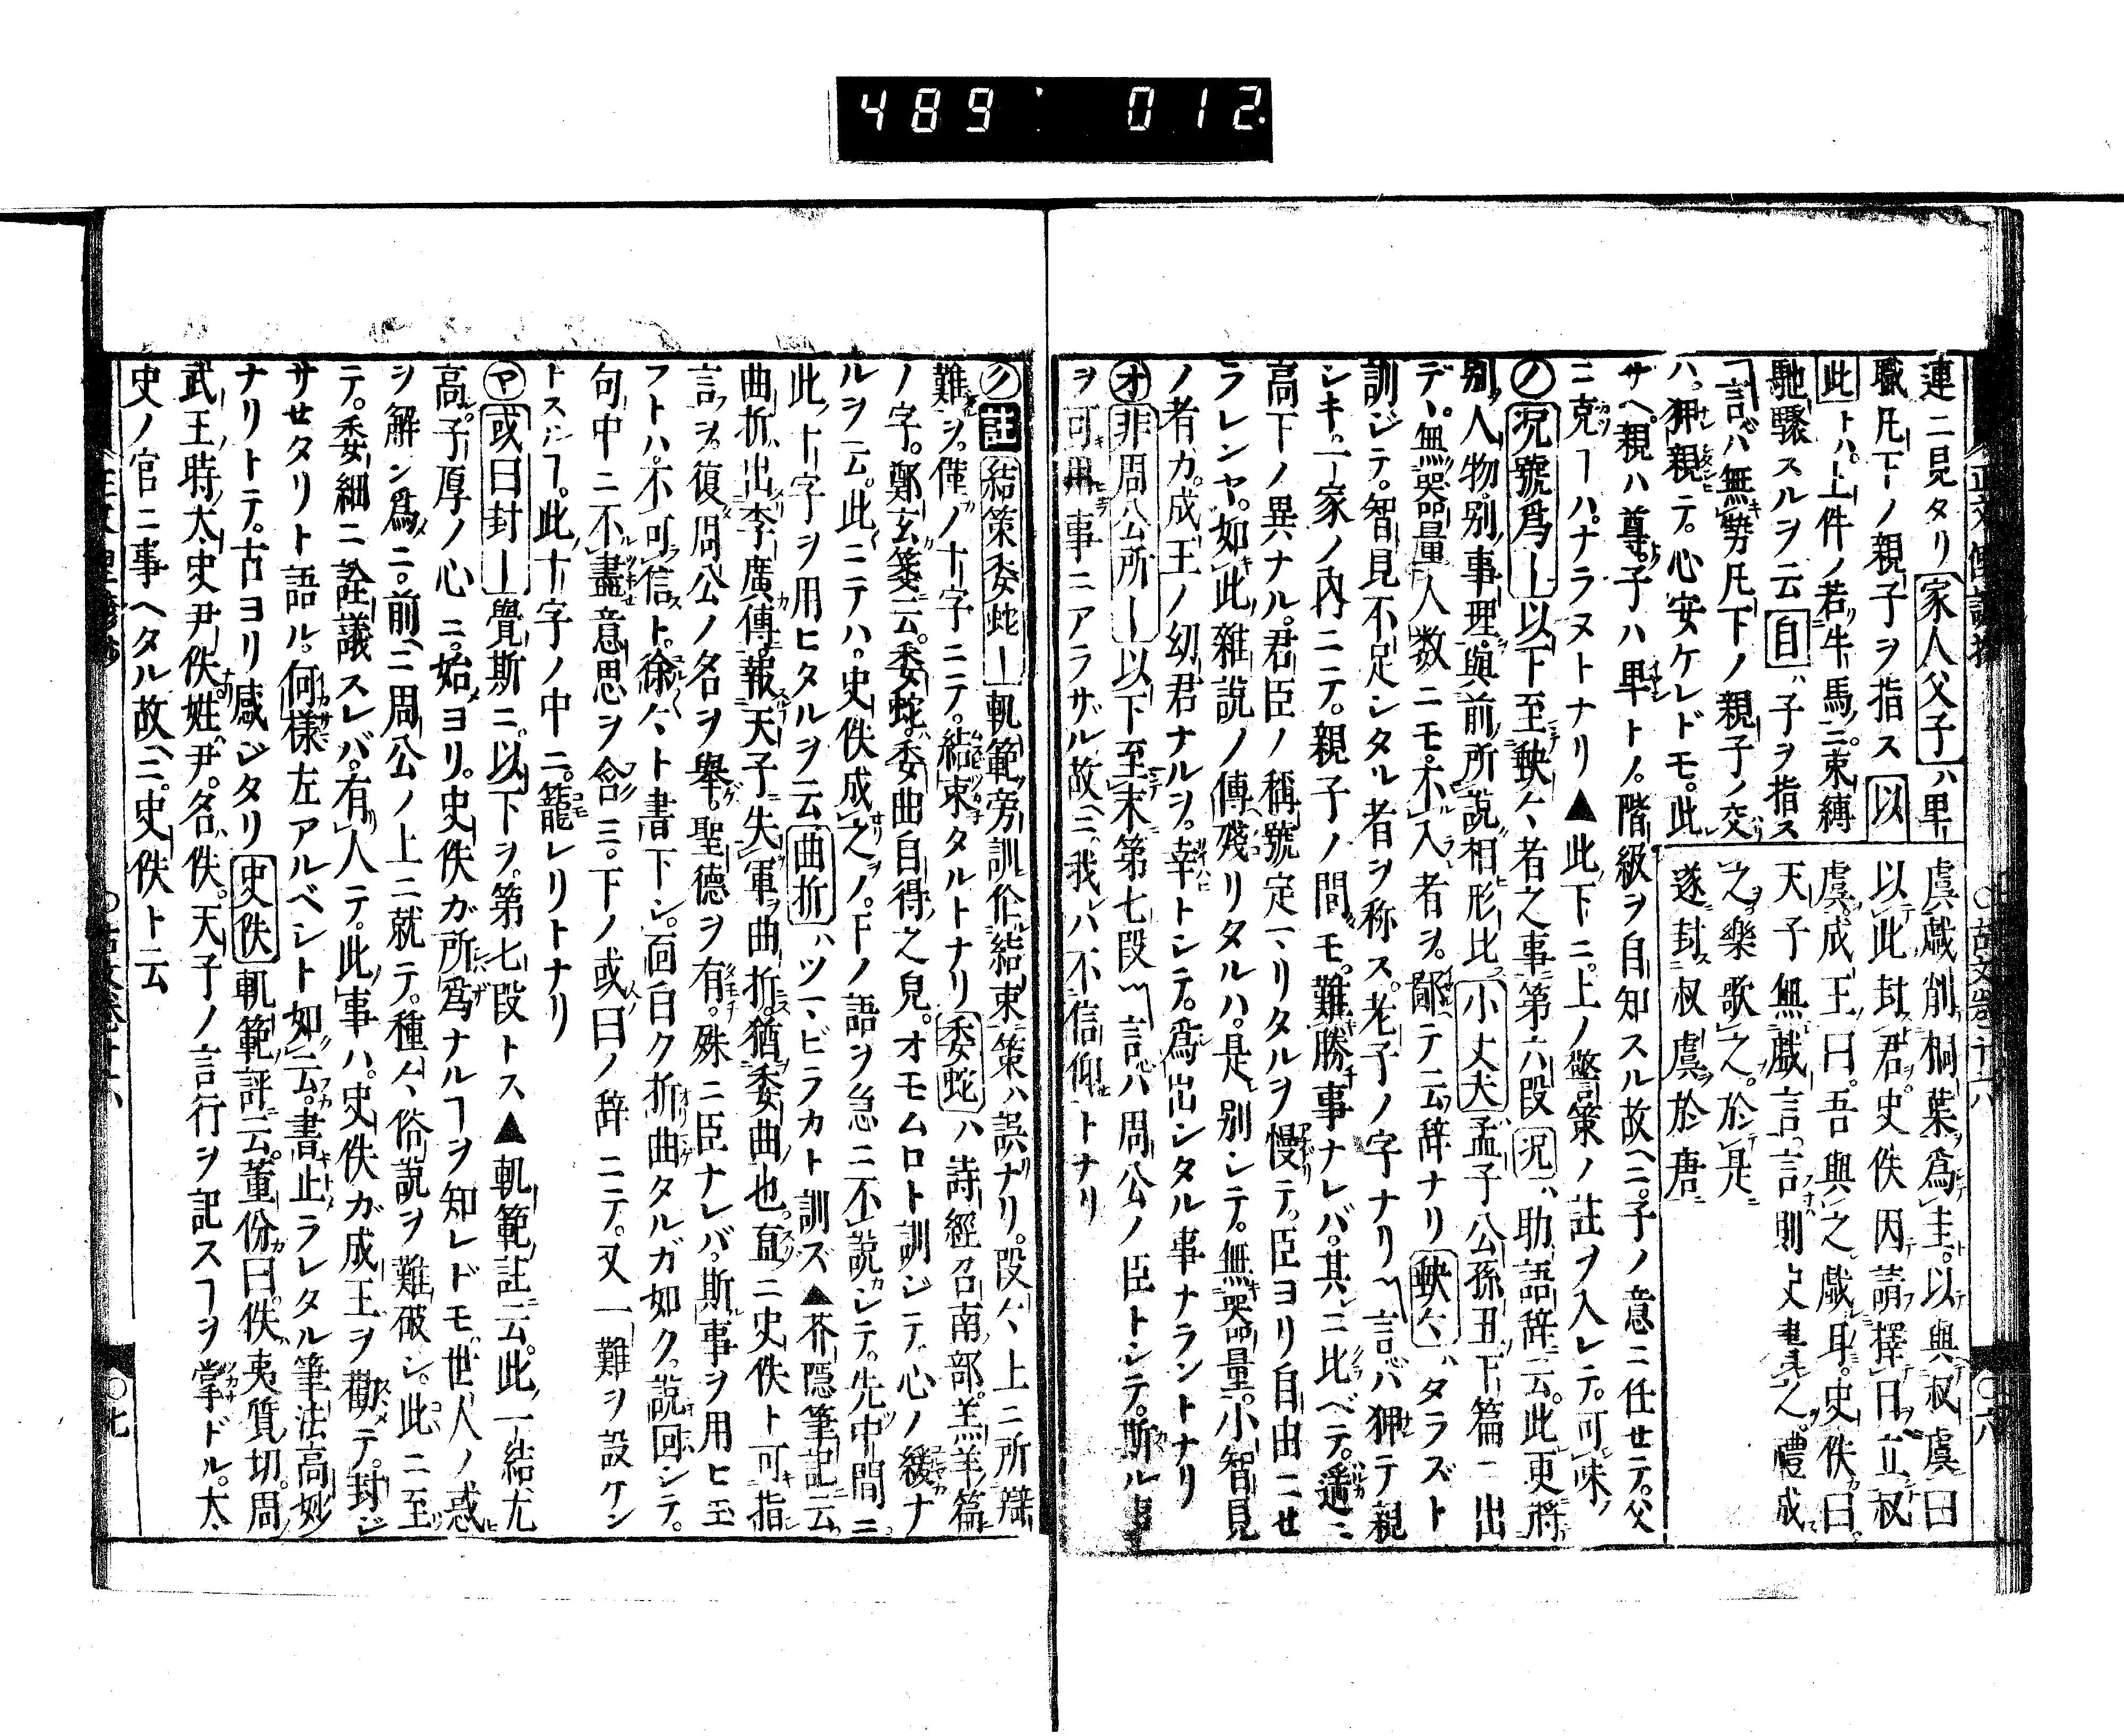 489 012
連ニ見タリ家人父子ハ里ー
職凡下ノ親子ヲ指ス以
此トハ上件ノ若牛馬ニ束縛
馳驟スルヲ云自ハ子ヲ指ス
言ハ無勢凡下ノ親子ノ交
ハ狎親テ心安ケレドモ此
虞戯削桐葉爲圭以與叔虞曰
以此封君史佚因請擇日立叔
虞成王曰吾與之戯耳史佚曰
天子無戯言言則史書之禮成
之樂歌之於是
遂封叔虞於唐
サヘ親ハ尊子ハ卑トノ階級ヲ自知スル故ニ子ノ意ニ任セテ父
ニ克ーハナラヌトナリ▲此下ニ上ノ警策ノ註ヲ入レテ可味
ノ况號爲ー以下至䡖〻者之事第六段况ハ助語辞云此更將
別人物別事理與前所説相形比小丈夫孟子公孫丑下篇ニ出
デ無噐量人数ニモ不入者ヲ鄙テ云辞ナリ䡖〻ハタラズト
訓ジテ智見不足シタル者ヲ称ス老子ノ字ナリ言ハ狎テ親
シキ一家ノ内ニテ親子ノ間モ難勝事ナレバ其ニ比ベテ遥ニ
高下ノ異ナル君臣ノ稱號定リタルヲ慢テ臣ヨリ自由ニセ
ラレンヤ如此雜説ノ傳殘リタルハ是別シテ無噐量小智見
ノ者カ成王ノ幼君ナルヲ幸トシテ爲出シタル事ナラントナリ
オ非周公所ー以下至末第七段言ハ周公ノ臣トシテ斯ル事
ヲ可用事ニアラザル故ニ我ハ不信仰トナリ
ク註結策委蛇ー軌範旁訓作結束策ハ誤ナリ段〻上ニ所辯
難ヲ僅ノ十字ニテ結束タルトナリ委蛇ハ詩經召南部羔羊篇
ノ字鄭玄箋云委蛇委曲自得之見オモムロト訓ジテ心ノ緩ナ
ルヲ云此ニテハ史佚成之ノ下ノ語ヲ急ニ不説シテ先中間ニ
此十字ヲ用ヒタルヲ云曲折ハツマビラカト訓ズ▲芥隠筆記云
曲折出李廣傳報天子失軍曲折猶委曲也直ニ史佚ト可指
言ヲ復周公ノ名ヲ舉聖德ヲ有殊ニ臣ナレバ斯事ヲ用ヒ玉
フトハ不可信ト徐〻ト書下シ面白ク折曲タルガ如ク説回シテ
句中ニ不盡意思ヲ含ミ下ノ或曰ノ辞ニテ又一難ヲ設ケン
トスルヿ此十字ノ中ニ籠レリトナリ
ヤ或曰封ー覺斯ニ以下ヲ第七段トス▲軌範註云此一結尤
高子厚ノ心ニ始ヨリ史佚ガ所爲ナルヿヲ知レドモ世人ノ惑
ヲ解ン爲ニ前ニ周公ノ上ニ就テ種〻俗説ヲ難破シ此ニ至
テ委細ニ詮議スレバ有人テ此事ハ史佚ガ成王ヲ勸テ封ジ
サセタリト語ル何様左アルベシト如云書止ラレタル筆法高妙
ナリトテ古ヨリ感ジタリ史佚軌範評云董份曰佚夷質切周
武王時太史尹佚姓尹名佚天子ノ言行ヲ記スヿヲ掌ドル太
史ノ官ニ事ヘタル故ニ史佚ト云